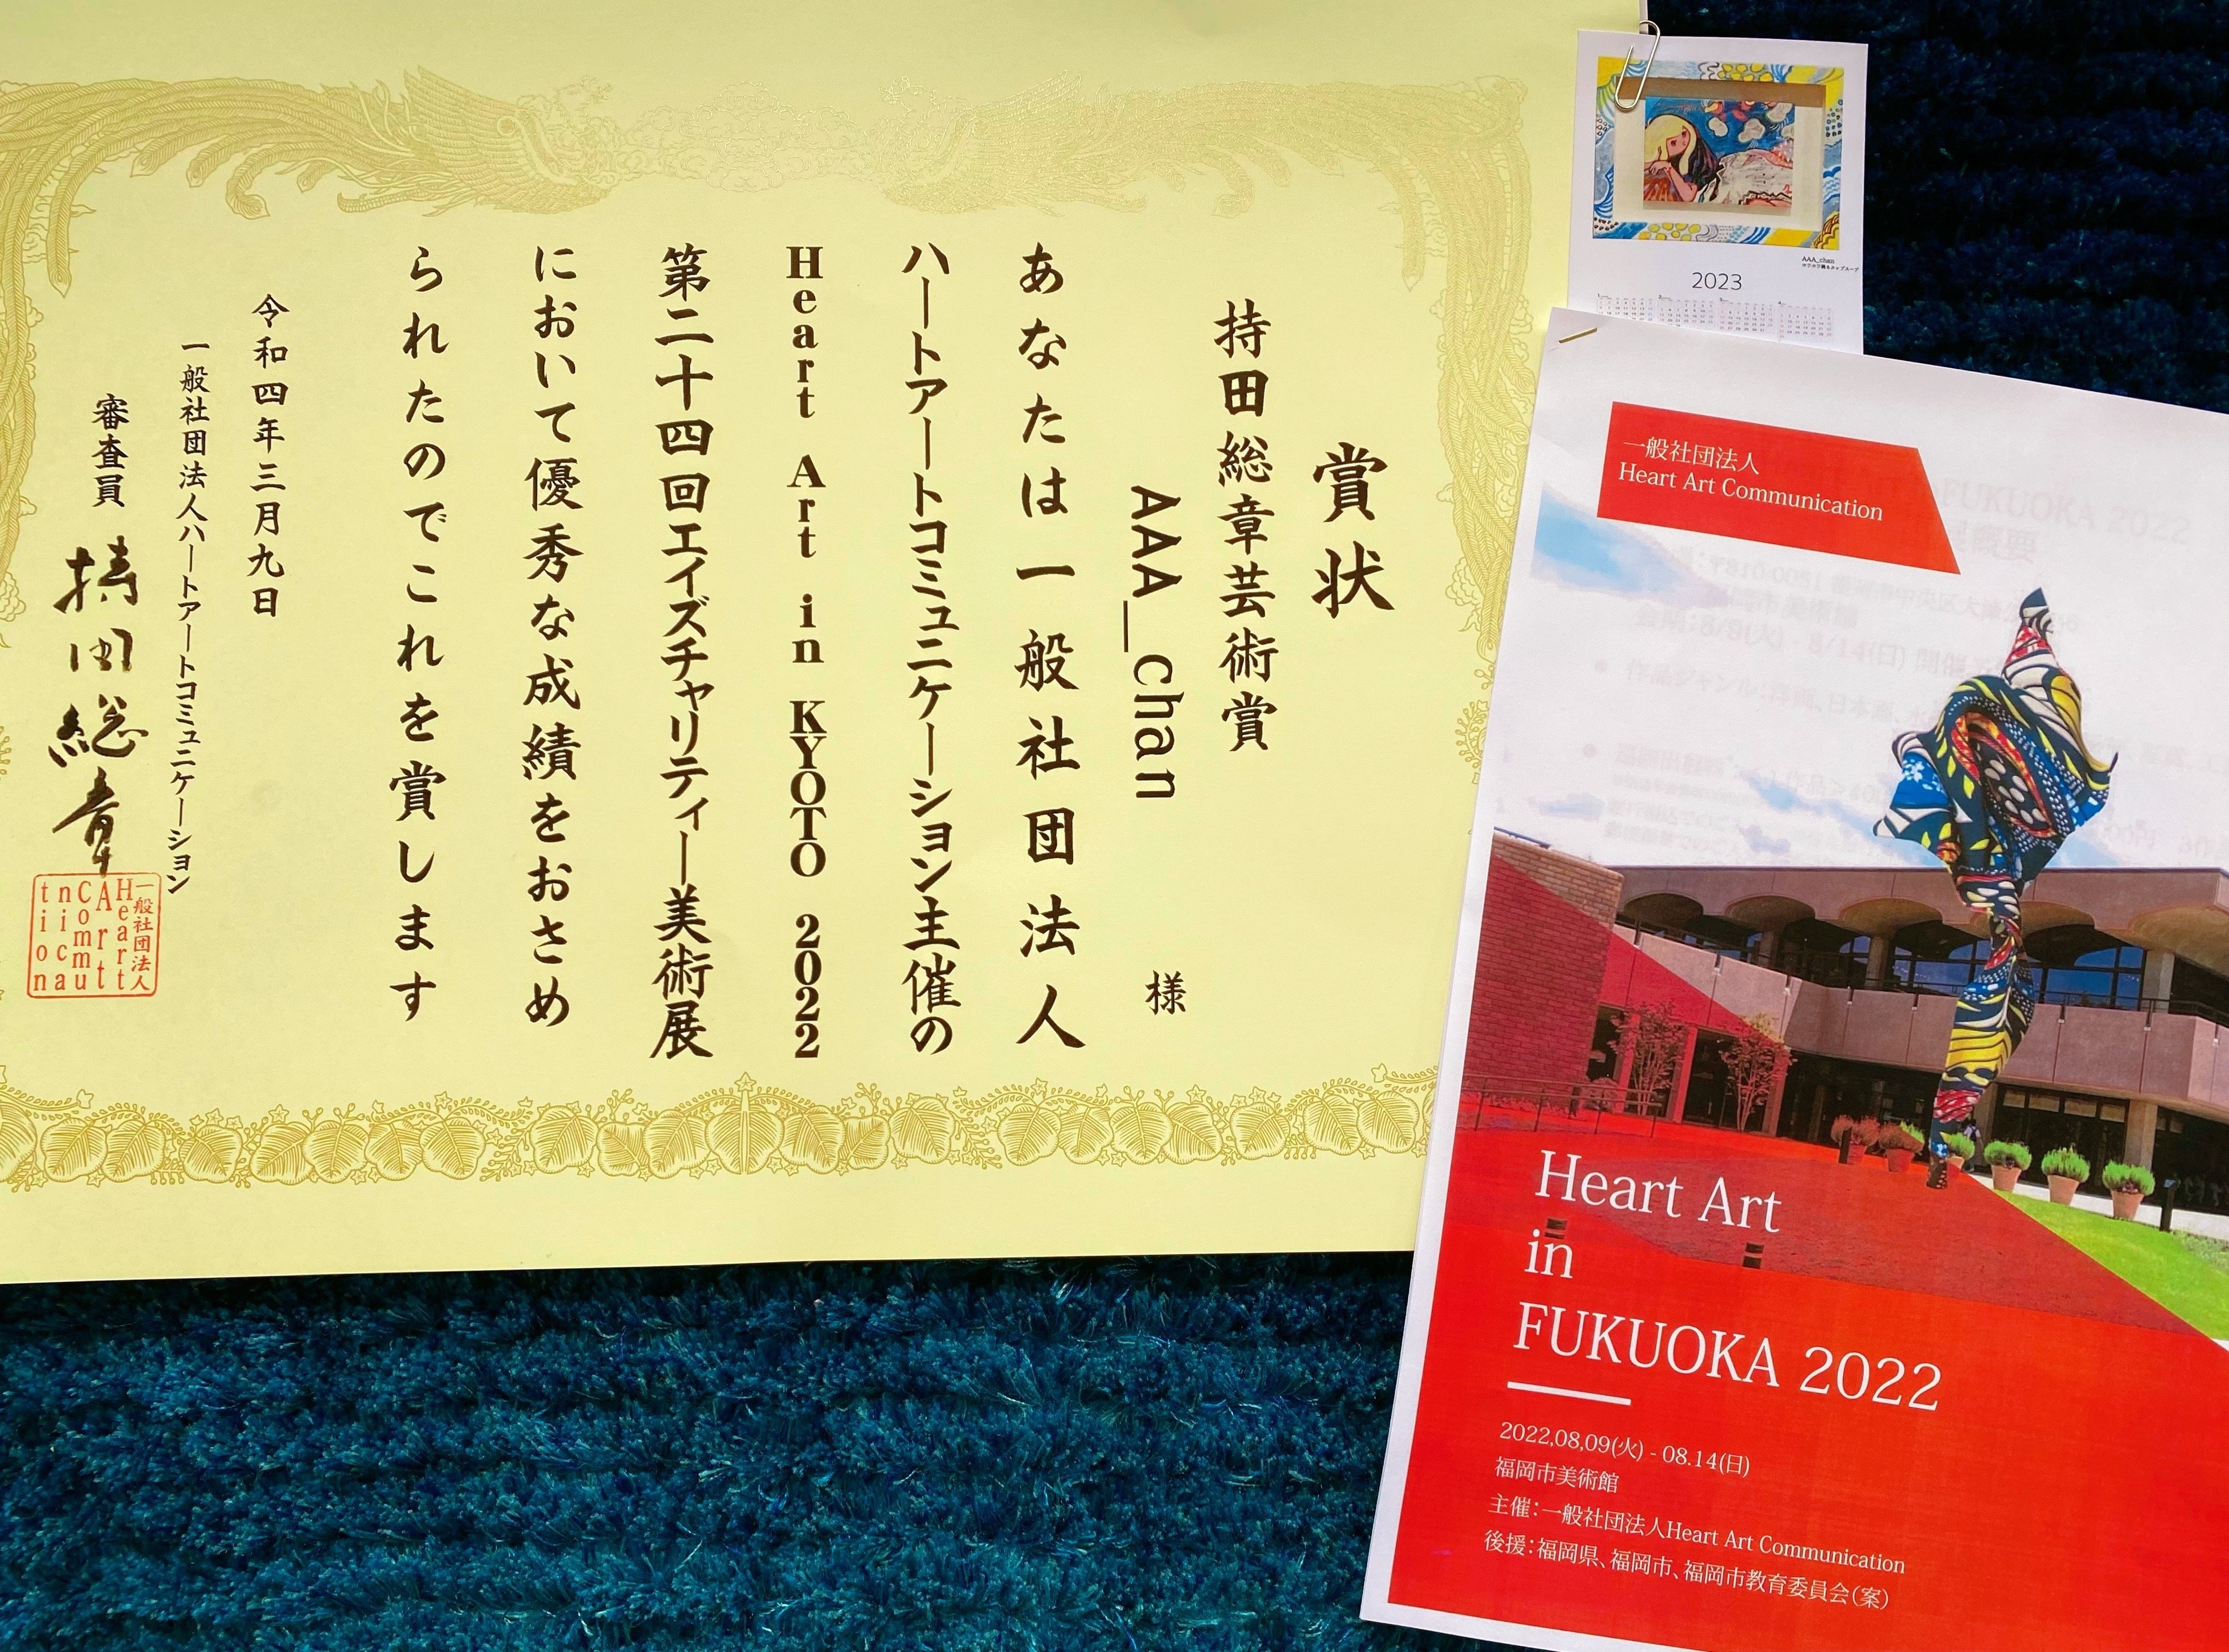 賞状
持田総章芸術賞
AAA_chan 様
あなたは一般社団法人
ハートアートコミュニケーション主催の
Heart Art in KYOTO 2022
第二十四回エイズチャリティー美術展
において優秀な成績をおさめ
られたのでこれを賞します
令和四年三月九日
一般社団法人ハートアートコミュニケーション
審査員 持田総章
一般社団法人
Heart
Art
Commu
nica
tion
AAA_chan
2023
一般社団法人
Heart Art Communication
Heart Art
in
FUKUOKA 2022
2022,08,09(火) - 08.14(日)
福岡市美術館
主催：一般社団法人Heart Art Communication
後援：福岡県、福岡市、福岡市教育委員会（案）